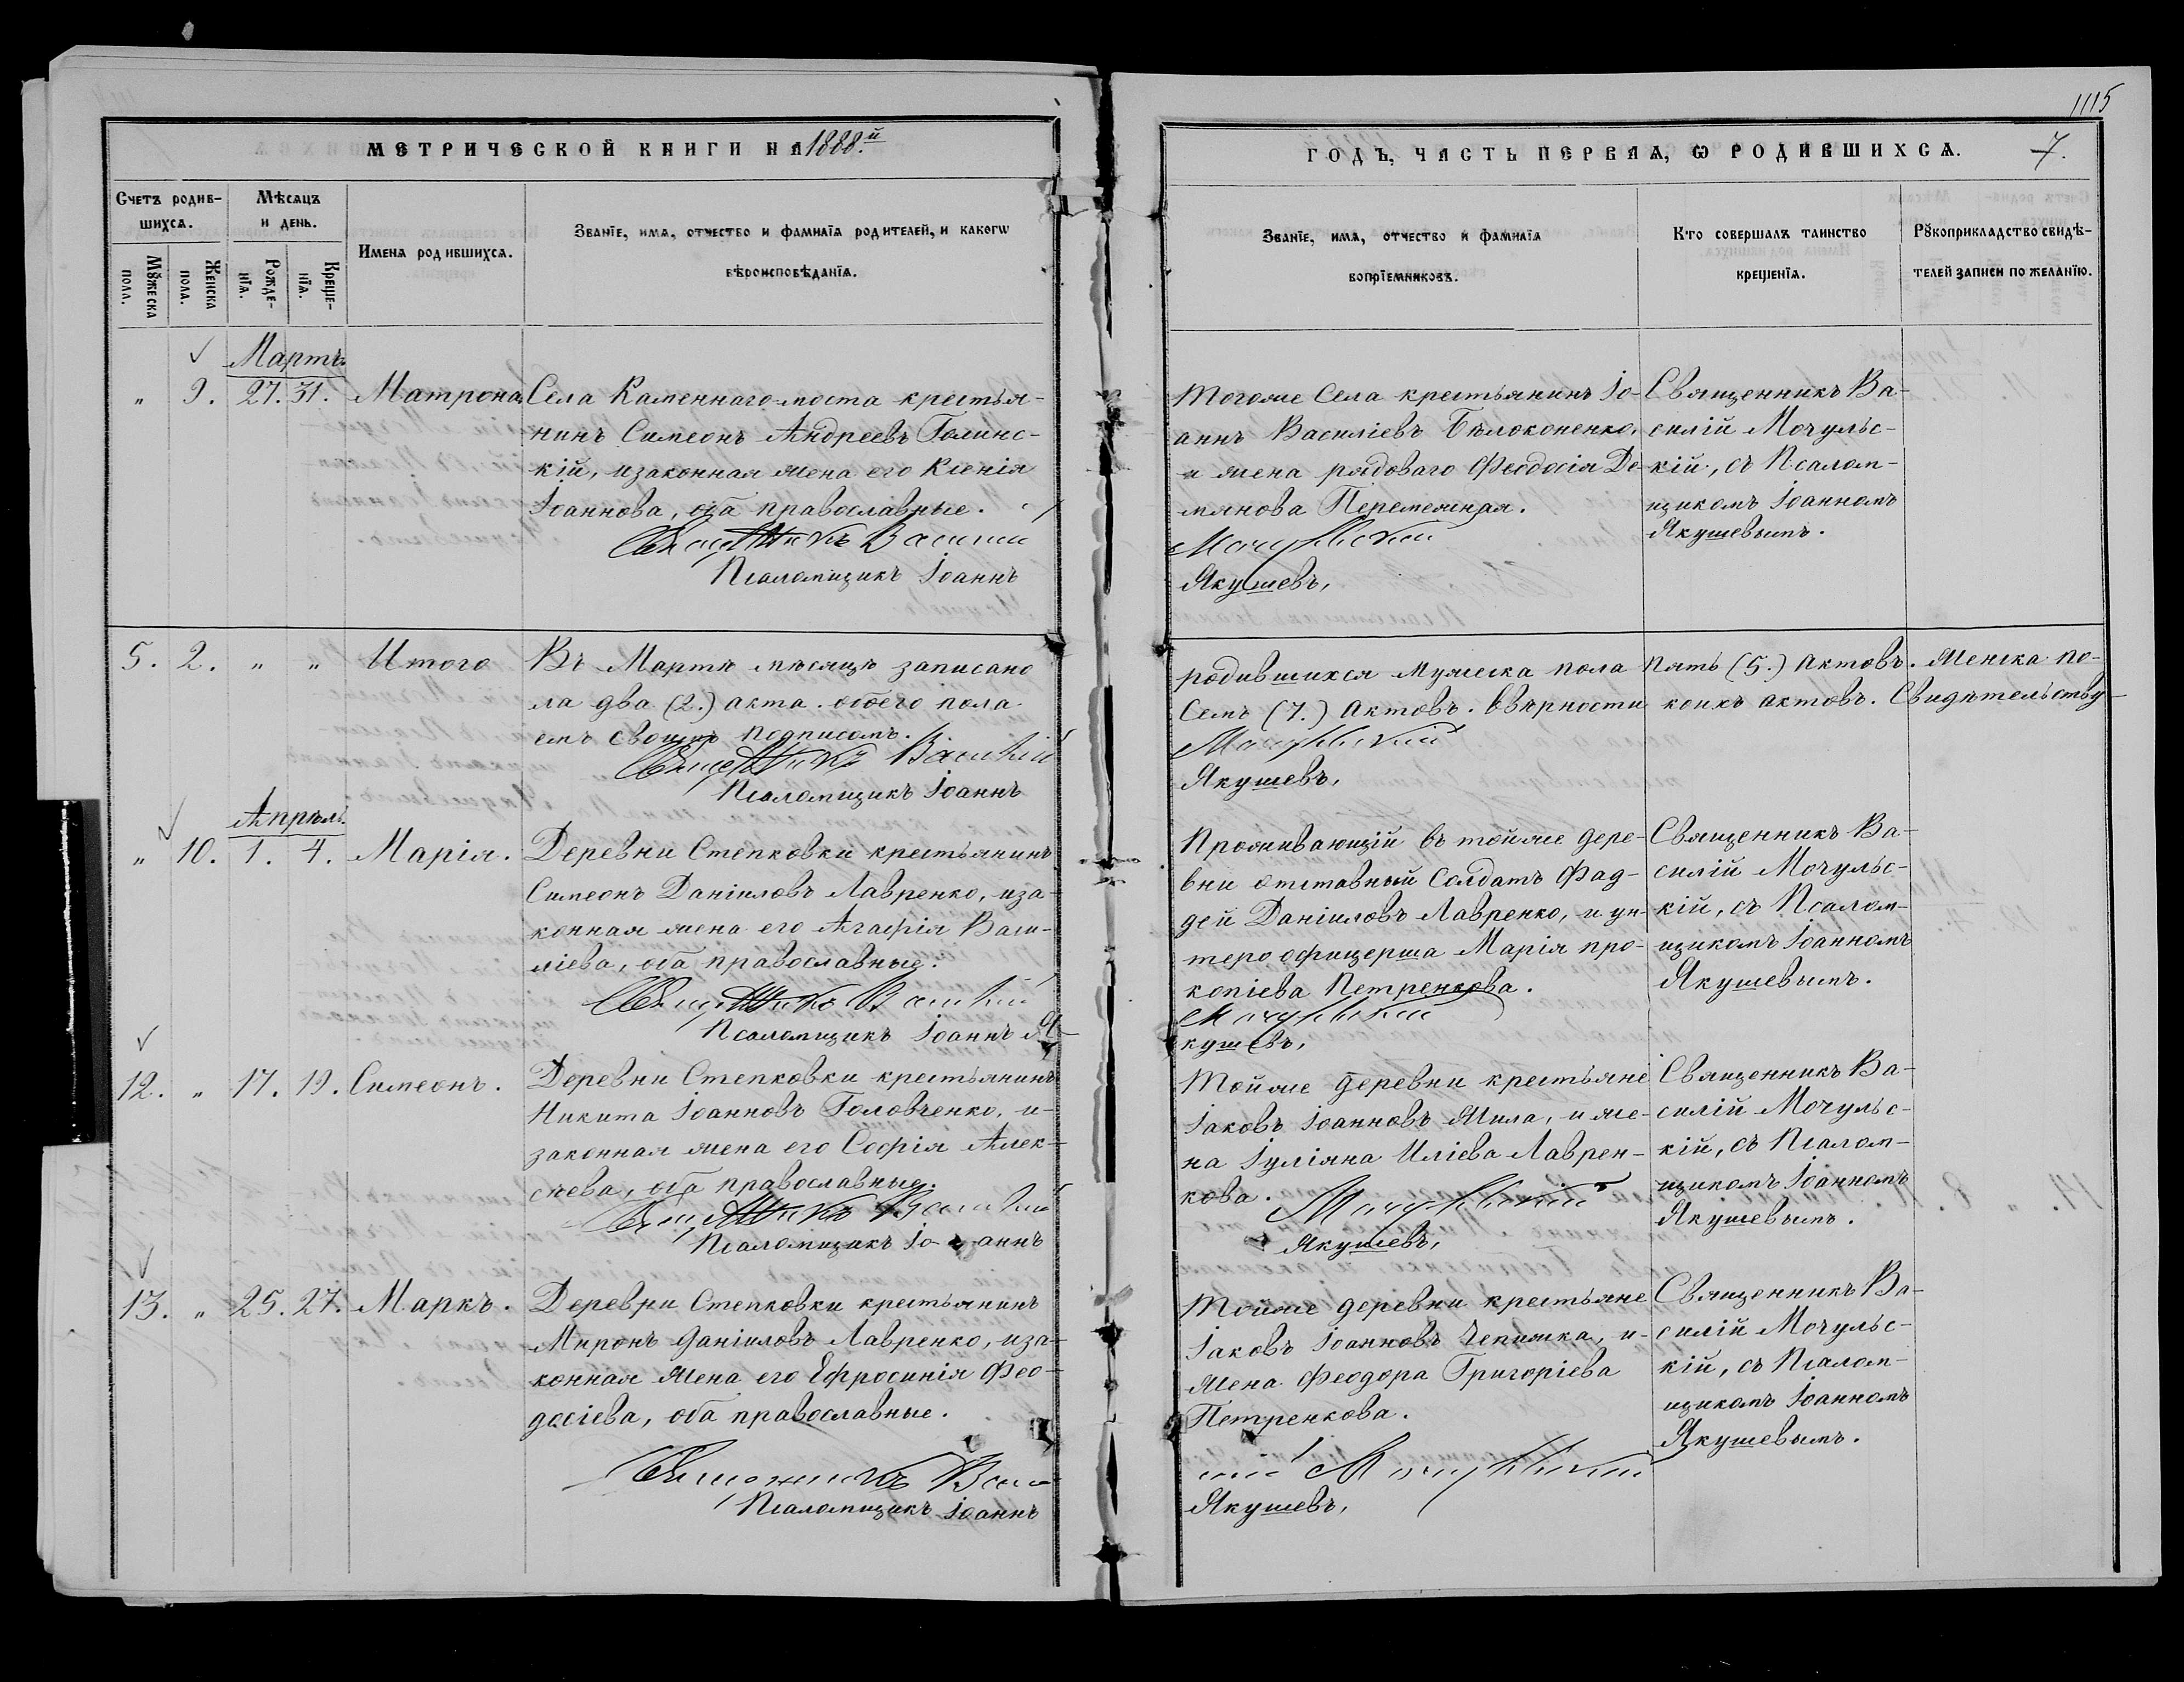 1115
МЕТРИЧЕСКОЙ КНИГИ НА 1888.й
ГОДЪ, ЧАСТЬ ПЕРВАЯ, Ѡ РОДИВШИХСѦ.
7.
Счетъ родив-
шихсѧ.
Мѣсѧцъ
и день.
Мꙋжеска
пола.
Женска
пола.
Рожде-
нїѧ.
Креще-
нїѧ.
Имена родившихсѧ.
Званїе, имѧ, отчество и фамилїѧ родителей, и какогѡ
вѣроисповѣданїѧ.
Званїе, имѧ, отчество и фамилїѧ
воспрїемниковъ.
Кто совершалъ таинство
крещенїѧ.
Рꙋкоприкладство свидѣ-
телей записи по желанїю.
Мартъ.
" 9. 27. 31. Матрона
Села Каменнаго-моста крестья-
нинъ Симеонъ Андреевъ Голинс-
кій, изаконная жена его Ксенія
Іоаннова, оба православные.
Священникъ Василий
Псаломщикъ Іоаннъ
Тогоже Села крестьянинъ Іо-
аннъ Василіевъ Бѣлоконенко,
и жена рядоваго Феодосія Де-
мянова Перемежная.
Мочульский
Якушевъ,
Священникъ Ва-
силій Мочульс-
кій, съ Псалом-
щикомъ Іоанномъ
Якушевымъ.
5. 2. " " Итого
Въ Мартѣ мѣсяцѣ записано
ла два (2.) акта. обоего пола
емъ своимъ подписомъ.
Священникъ Василій
Псаломщикъ Іоаннъ
родившихся мужеска пола пять (5.) Актовъ. Женска по-
Семь (7.) Актовъ. Ввѣрности коихъ актовъ. Свидѣтельству-
Мочульский
Якушевъ,
Апрѣль.
" 10. 1. 4. Марія.
Деревни Степковки крестьянинъ
Симеонъ Даніиловъ Лавренко, иза-
конная жена его Агафія Васи-
ліева, оба православные.
Священникъ Василий
Псаломщикъ Іоаннъ Я-
Проживающій въ тойже дере-
вни отставный Солдатъ Фад-
дей Даніиловъ Лавренко, и ун-
теро офицерша Марія про-
копіева Петренкова.
Мочульский
кушевъ,
Священникъ Ва-
силій Мочульс-
кій, съ Псалом-
щикомъ Іоанномъ
Якушевымъ.
12. " 17. 19. Симеонъ.
Деревни Степковки крестьянинъ
Никита Іоанновъ Головченко, и-
законная жена его Софія Алек-
сѣева, оба православные.
Священникъ Василий
Псаломщикъ Іо-аннъ
Тойже деревни крестьяне
Іаковъ Іоанновъ Жила, и же-
на Іуліяна Иліева Лаврен-
кова.
Мочульский
Якушевъ,
Священникъ Ва-
силій Мочульс-
кій, съ Псалом-
щикомъ Іоанномъ
Якушевымъ.
13. " 25. 27. Маркъ.
Деревни Степковки крестьянинъ
Миронъ Даніиловъ Лавренко, иза-
конная жена его Ефросинія Фео-
досіева, оба православные.
Священникъ Васи-
Псаломщикъ Іоаннъ
Тойже деревни крестьяне
Іаковъ Іоанновъ Чепижка, и-
жена Феодора Григоріева
Петренкова.
лий Мочульский
Якушевъ,
Священникъ Ва-
силій Мочульс-
кій, съ Псалом-
щикомъ Іоанномъ
Якушевымъ.